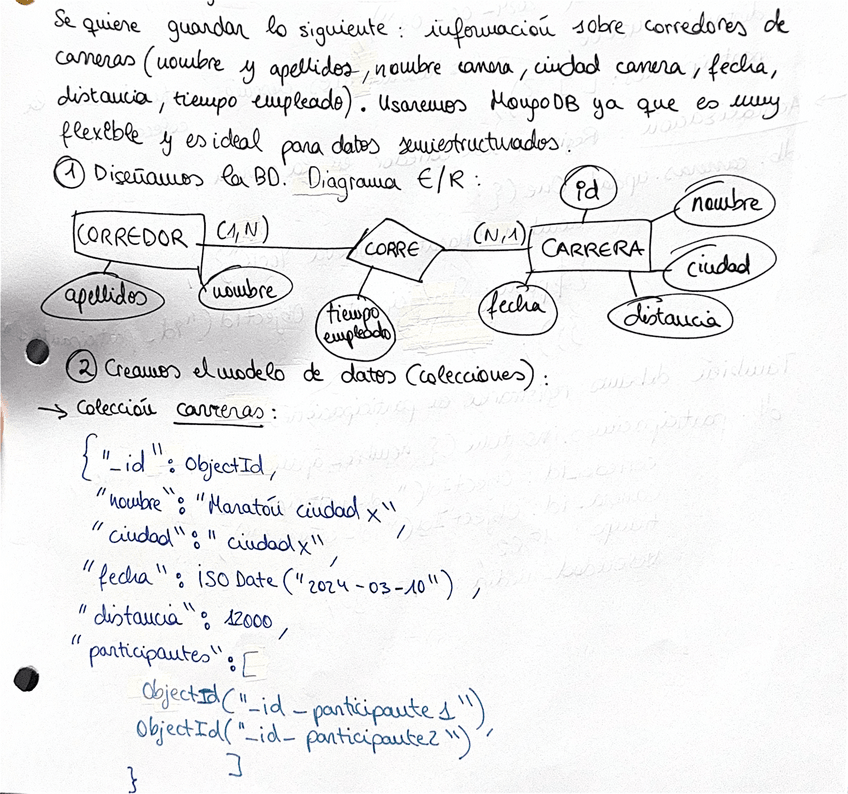 Se quiere guardar lo siguiente : información sobre corredores de
carreras (nombre y apellidos, nombre carrera, ciudad carrera, fecha,
distancia, tiempo empleado). Usaremos MongoDB ya que es muy
flexible y es ideal para datos semiestructurados.
① Diseñamos la BD. Diagrama E/R :
id
nombre
CORREDOR (1,N) CORRE (N,1) CARRERA
ciudad
apellidos nombre tiempo empleado fecha distancia
② Creamos el modelo de datos (colecciones) :
→ Colección carreras :
{ "_id" : ObjectId,
"nombre" : "Maratón ciudad x",
"ciudad" : " ciudad x",
"fecha" : ISODate("2024-03-10") ,
"distancia" : 12000 ,
"participantes" : [
ObjectId("_id - participante 1"),
ObjectId("_id - participante2")
]
}